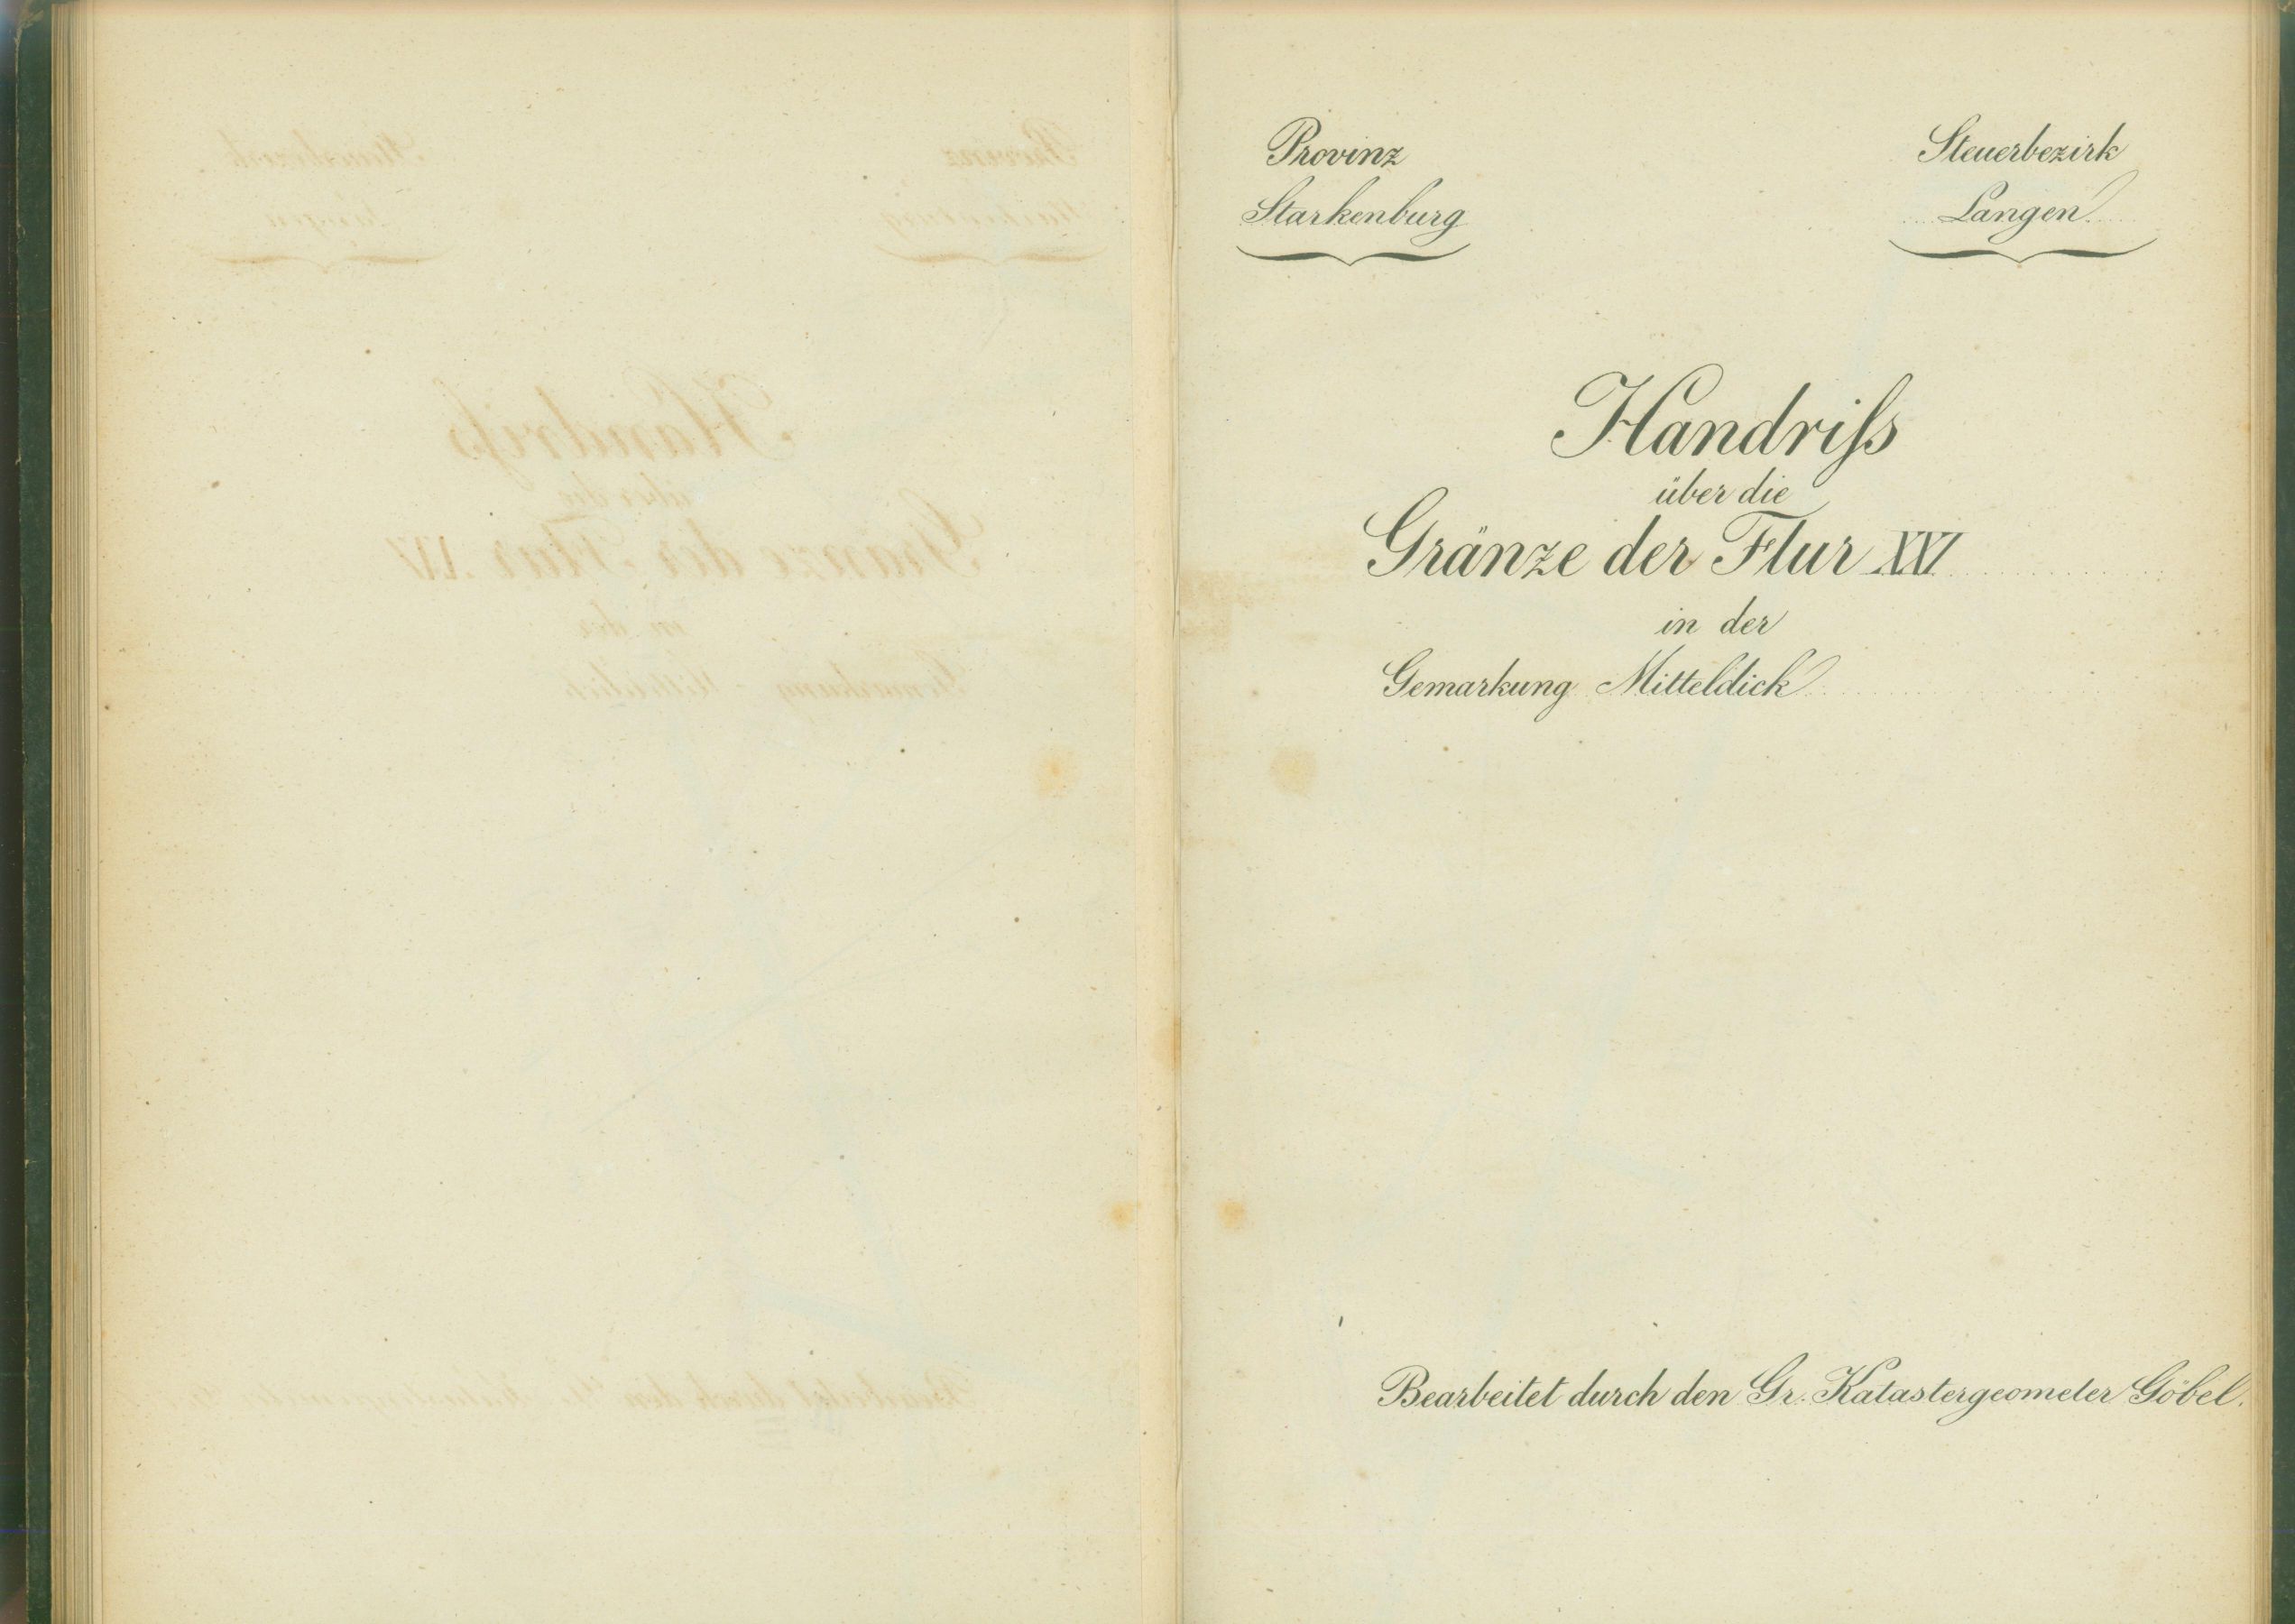 Provinz
Starkenburg
Steuerbezirk
Langen
Handriſs
über die
Gränze der Flur XVI
in der
Gemarkung Mitteldick
Bearbeitet durch den Gr. Katastergeometer Göbel.